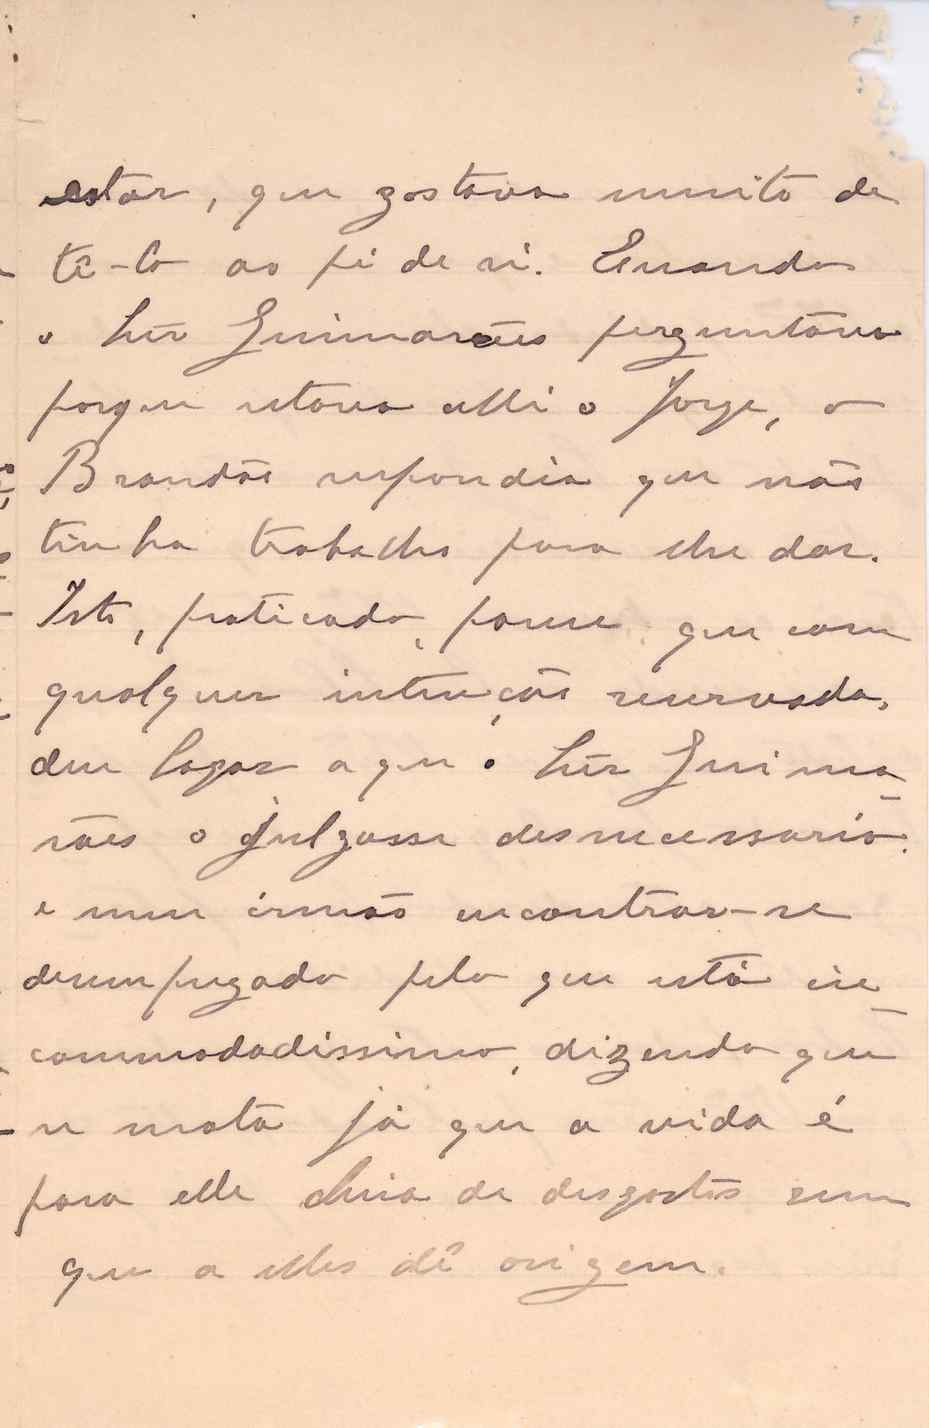 estar, que gostava muito de
tê-lo ao pé de si. E quando
o Snr Guimarães perguntava
porque estava alli o Jorge, o
Brandão respondia que não
tinha trabalho para lhe dar.
Isto, praticado, parece que com
qualquer intenção reservada,
deu logar a que o Snr Guima
rães o julgasse desnecessario
e meu irmão encontrar-se
desempregado pelo que está in
commodadissimo, dizendo que
se mata já que a vida é
para elle cheia de desgostos sem
que a elles dê origem.